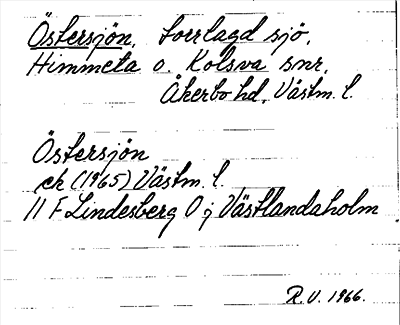 Östersjön, torrlagd sjö,
Himmeta o. Kolsva snr,
Åkerbo hd, Västm. l.
Östersjön
ek (1965) Västm. l.
11 F Lindesberg O j Västlandaholm
R.V. 1966.